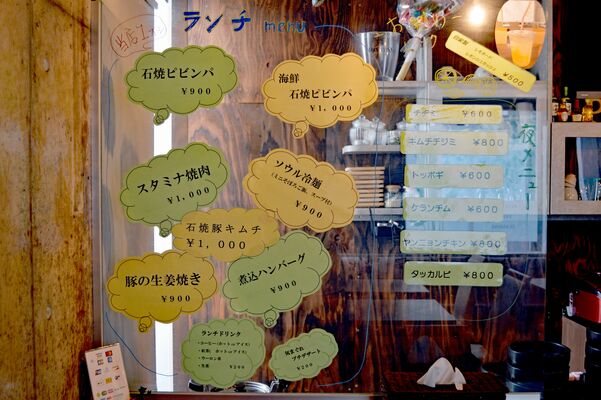 ランチ menu
当店1
石焼ビビンバ
¥900
海鮮
石焼ビビンバ
¥1,000
スタミナ焼肉
¥1,000
ソウル冷麺
(ミニそぼろご飯、スープ付)
¥900
石焼豚キムチ
¥1,000
豚の生姜焼き
¥900
煮込ハンバーグ
¥900
ランチドリンク
・コーヒー(ホットorアイス)
・紅茶(ホットorアイス)
・ウーロン茶
¥200
気まぐれ
プチデザート
¥200
¥500
チヂミ ¥600
キムチチヂミ ¥800
トッポギ ¥600
ケランチム ¥600
ヤンニョンチキン ¥800
タッカルビ ¥800
夜メニュー